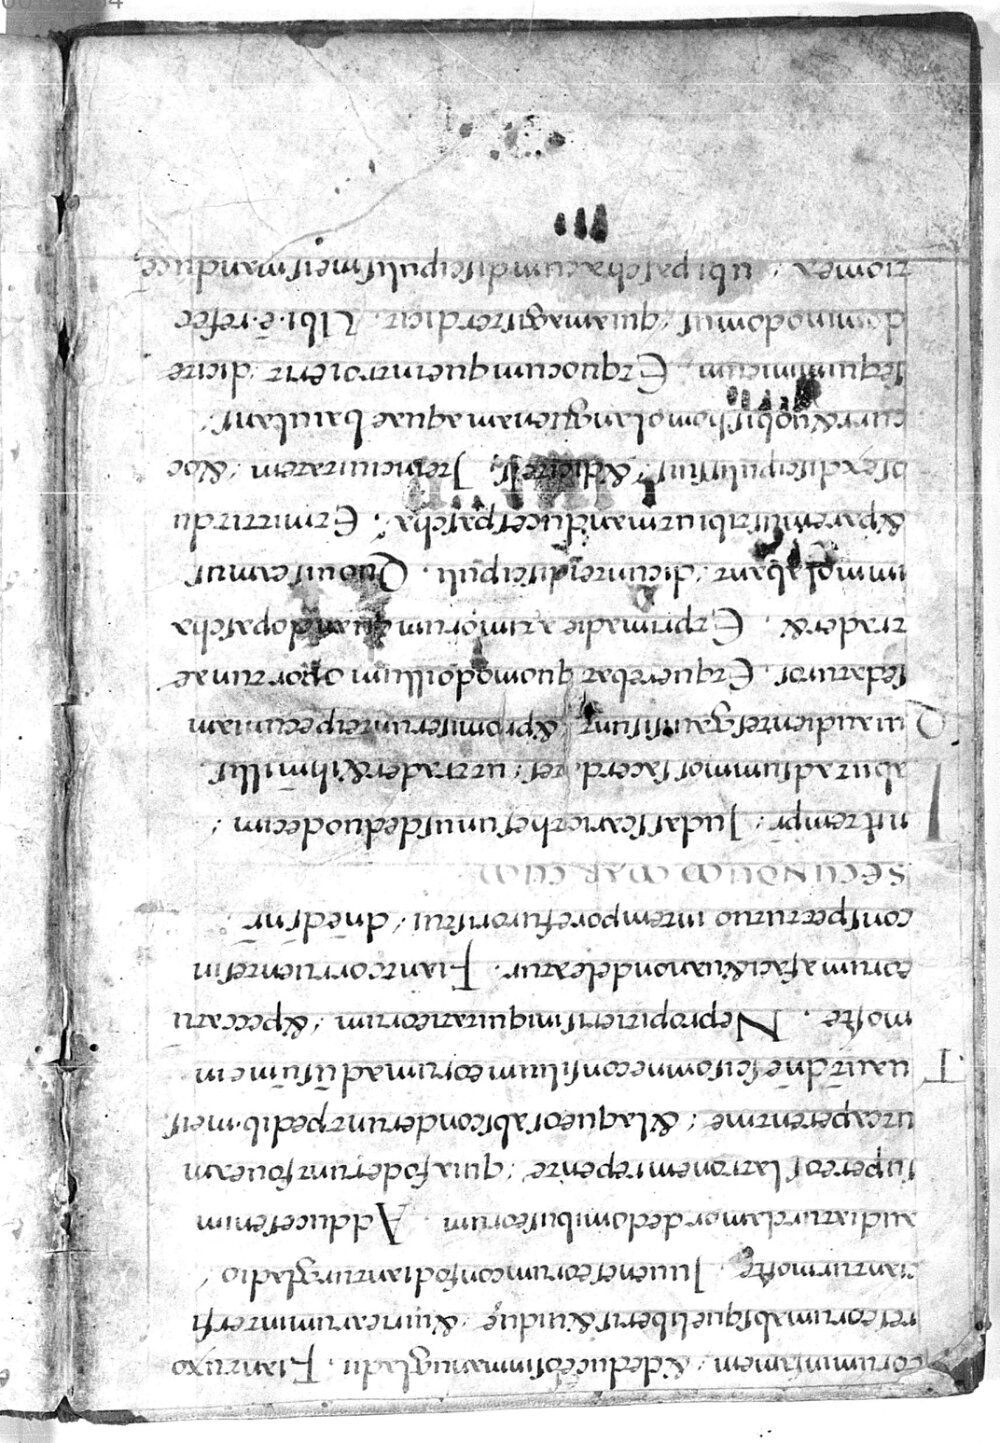 eorum infamem, & deduceosinmanugladii. Fiantuxo
reseorumabsqueliberis&uiduę, &uiriearuminterfi
ciantur morte, Iuueneseorumconfodianturgladio,
audiaturclamordedomibuseorum. Adducesenim
supereoslatronemrepente, quiafoderuntfoueam
utcaperentme; &laqueosabsconderuntpedib; meis.
Tuaut̄ dn̄e scisomneconsiliumeorumadūsumein
morte. Nepropitierisiniquitatieorum, &peccatū
eorumafaci&uanondeleatur. Fiantcorruentesin
conspectutuo intemporefuroristui, dn̄edsnr̄.
SECUNDUM MARCUM
In st. temp̄r; Iudasscariothesunusdeduodecim;
abiitadsummossacerdotes; uttrader&ihm̄illis.
Quiaudientesgauisisunt, &promiseruntei pecuniam
sedaturos. Etquerebat quomodoillum oportunae
trader&. Etprimadieazimorumquandopascha
immolabant, dicunteidiscipuli. Quouiseamus
&paremustibiutmanducespascha; Etmittitdu
osexdiscipulissuis, &diciteis; Iteinciuitatem, &oc
curr&uobishomolaguenamaquaebaiulans,
sequiminieum. Etquocumqueintroierit, dicite
dominodomus, quiamagisterdicit. Ubi.ē.refec
tiomea, ubipaschacumdiscipulismeismanducē